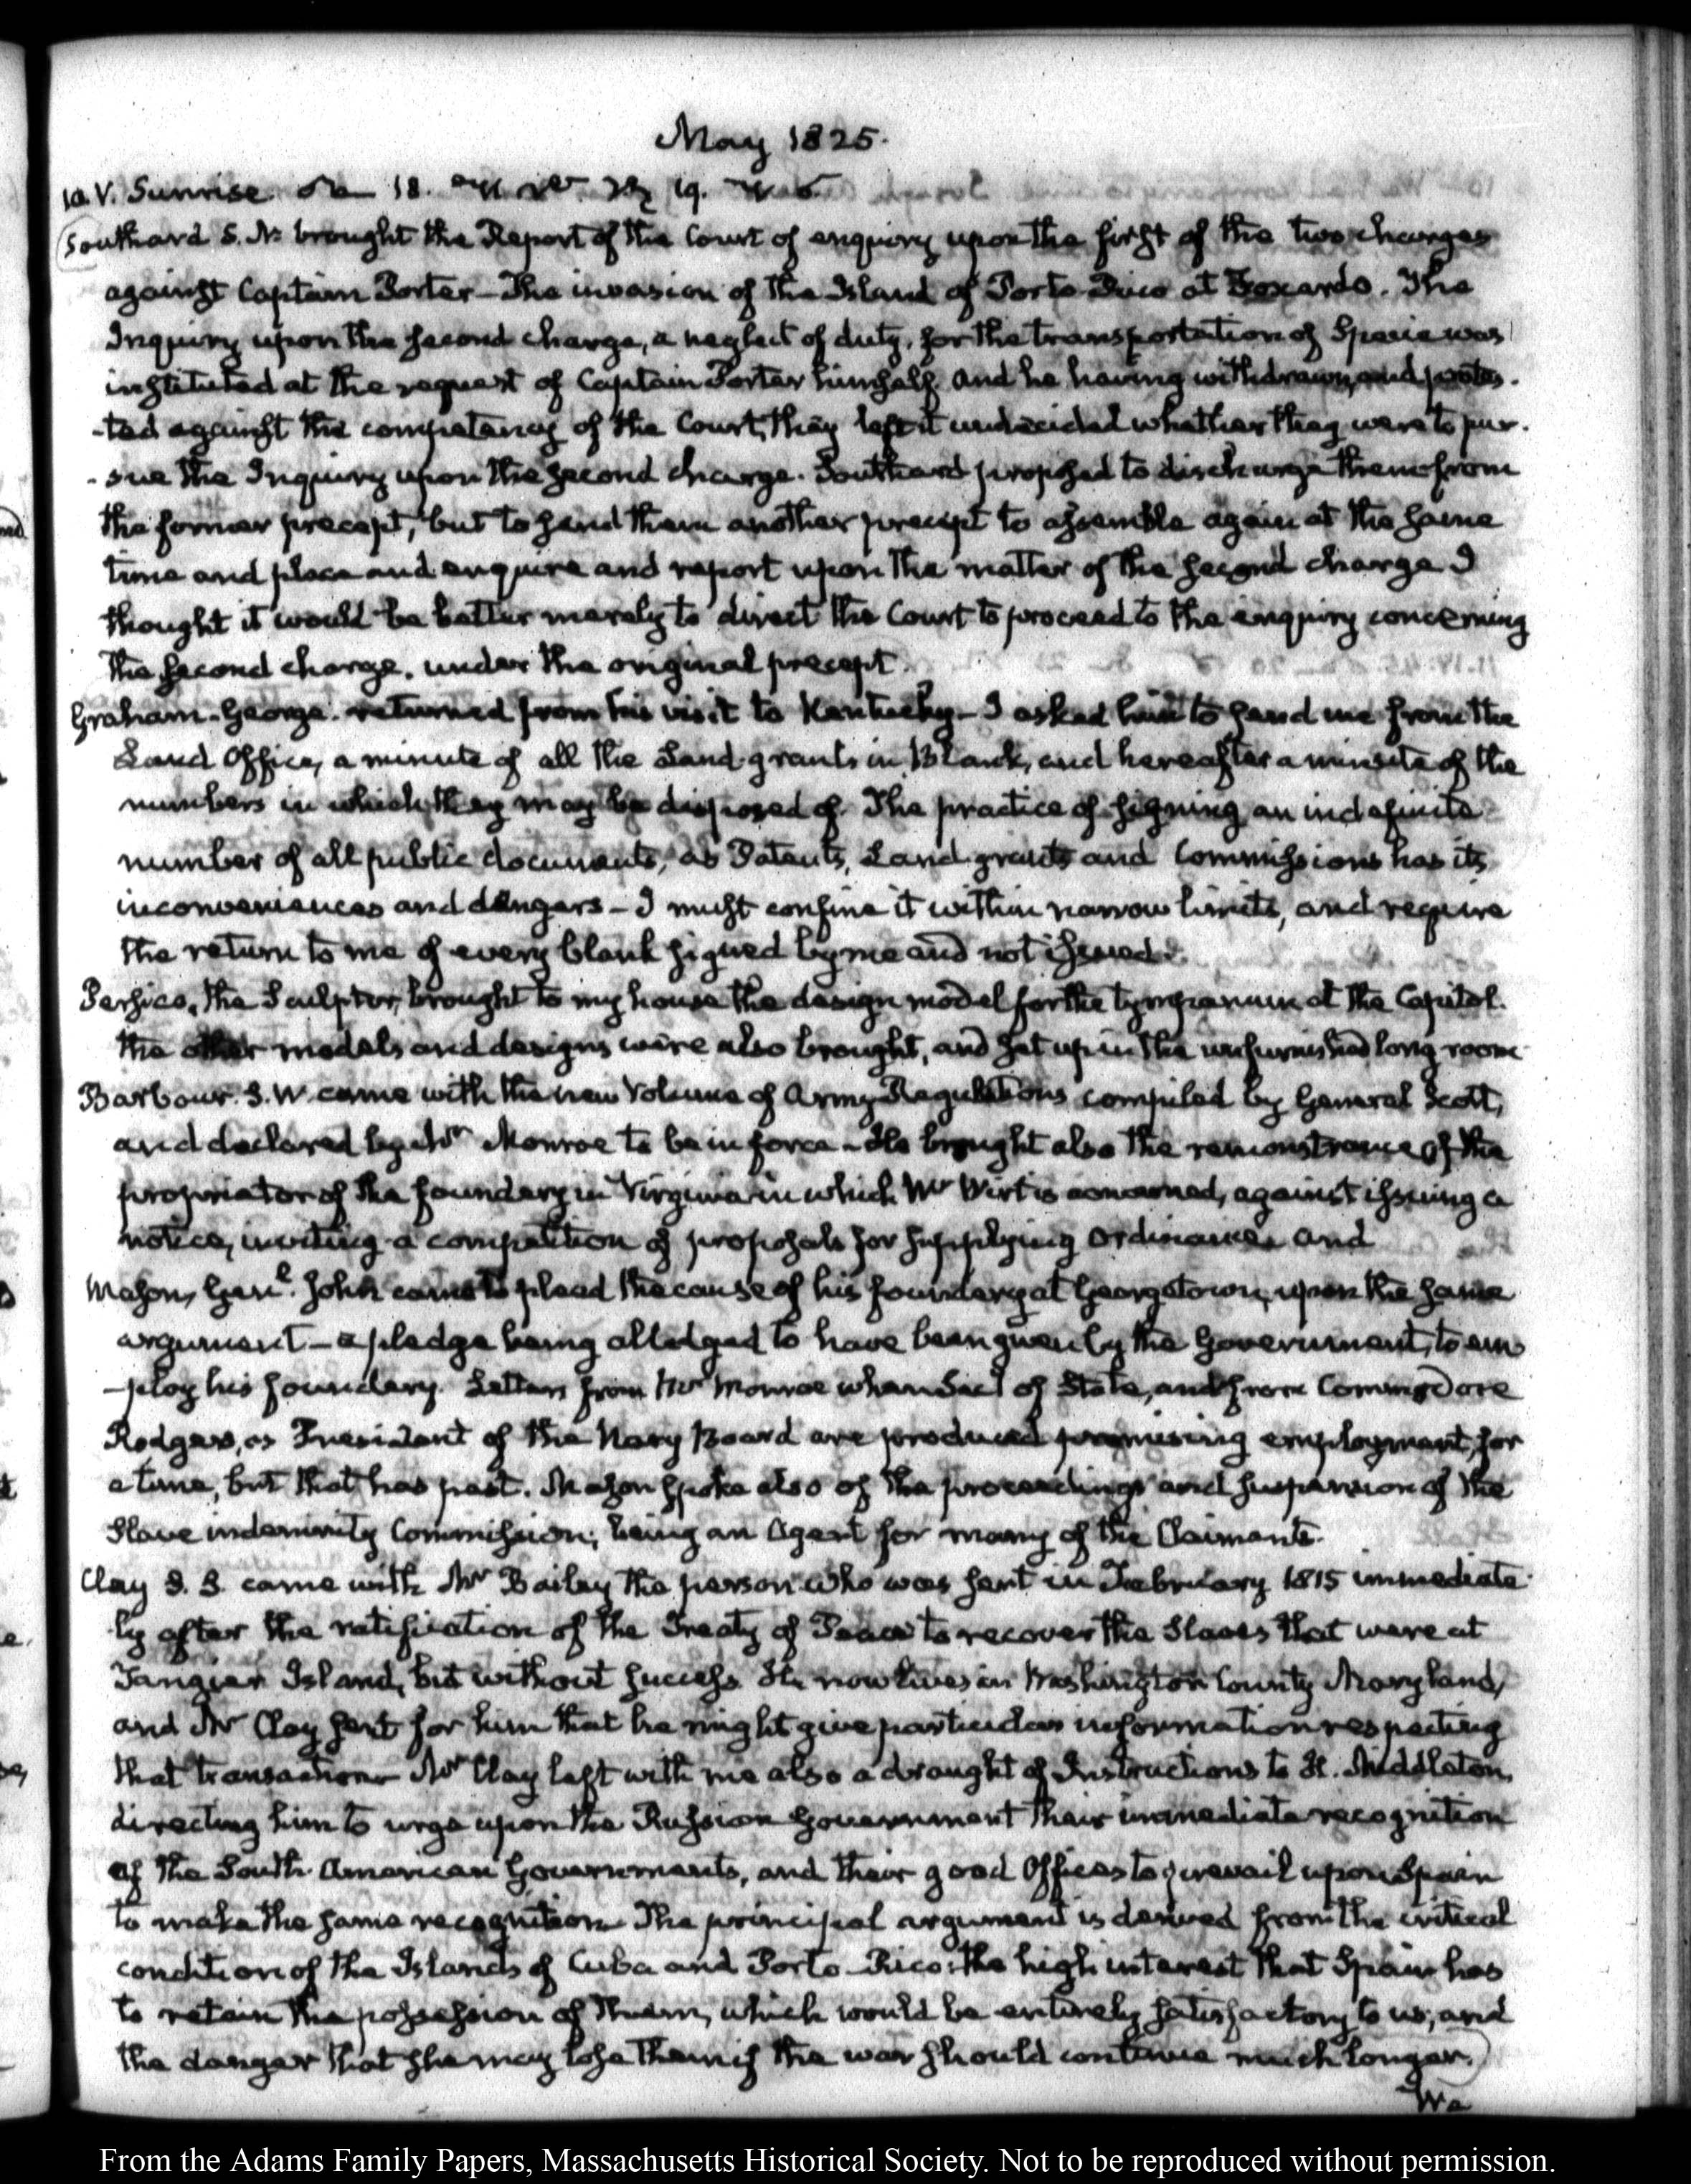 May 1825.
10. V. Sunrise 18. 19.
Southard S. N. brought the Report of the Court of enquiry upon the first of the two charges
against Captain Porter — The invasion of the Island of Porto Rico at Foxardo. The
Inquiry upon the second charge, a neglect of duty, for the transportation of Specie was
instituted at the request of Captain Porter himself and he having withdrawn, and protes-
-ted against the competency of the Court, they left it undecided whether they were to pur-
-sue the Inquiry upon the second charge. Southard proposed to discharge them from
the former precept, but to send them another precept to assemble again at the same
time and place and enquire and report upon the matter of the second charge I
thought it would be better merely to direct the Court to proceed to the enquiry concerning
the second charge, under the original precept.
Graham. George. returned from his visit to Kentucky — I asked him to send me from the
Land Office, a minute of all the Land-grants in Blank, and hereafter a minute of the
numbers in which they may be disposed of. The practice of signing an indefinite
number of all public documents, as Patents, Land grants and Commissions has its
inconveniences and dangers — I must confine it within narrow limits, and require
the return to me of every blank signed by me and not issued.
Persico, the Sculptor, brought to my house the design model for the tympanum at the Capitol.
the other models and designs were also brought, and set up in the unfurnished long room
Barbour. S. W. came with the new Volume of Army Regulations compiled by General Scott,
and declared by Mr Monroe to be in force — He brought also the remonstrance of the
proprietor of the foundery in Virginia in which Mr Wirt is concerned, against issuing a
notice, inviting a competition of proposals for supplying ordinance and
Mason, Genl. John came to plead the cause of his foundery at Georgetown, upon the same
argument — a pledge being alledged to have been given by the Government, to em
-ploy his foundery. Letters from Mr Monroe when Secy of State, and from Commodore
Rodgers, as President of the Navy Board are produced promising employment, for
a time, but that has past. Mason spoke also of the proceedings and suspension of the
Slave indemnity Commission; being an Agent for many of the Claimants.
Clay S. S. came with Mr Bailey the person who was sent in February 1815 immediate-
ly after the ratification of the Treaty of Peace to recover the Slaves that were at
Tangier Island, but without success. He now lives in Washington County Maryland,
and Mr Clay sent for him that he might give particular information respecting
that transaction. Mr Clay left with me also a draught of Instructions to H. Middleton,
directing him to urge upon the Russian Government their immediate recognition
of the South-American Governments, and their good Offices to prevail upon Spain
to make the same recognition The principal argument is derived from the critical
condition of the Islands of Cuba and Porto-Rico: the high interest that Spain has
to retain the possession of them, which would be entirely satisfactory to us; and
the danger that she may lose them if the war should continue much longer.
We
From the Adams Family Papers, Massachusetts Historical Society. Not to be reproduced without permission.